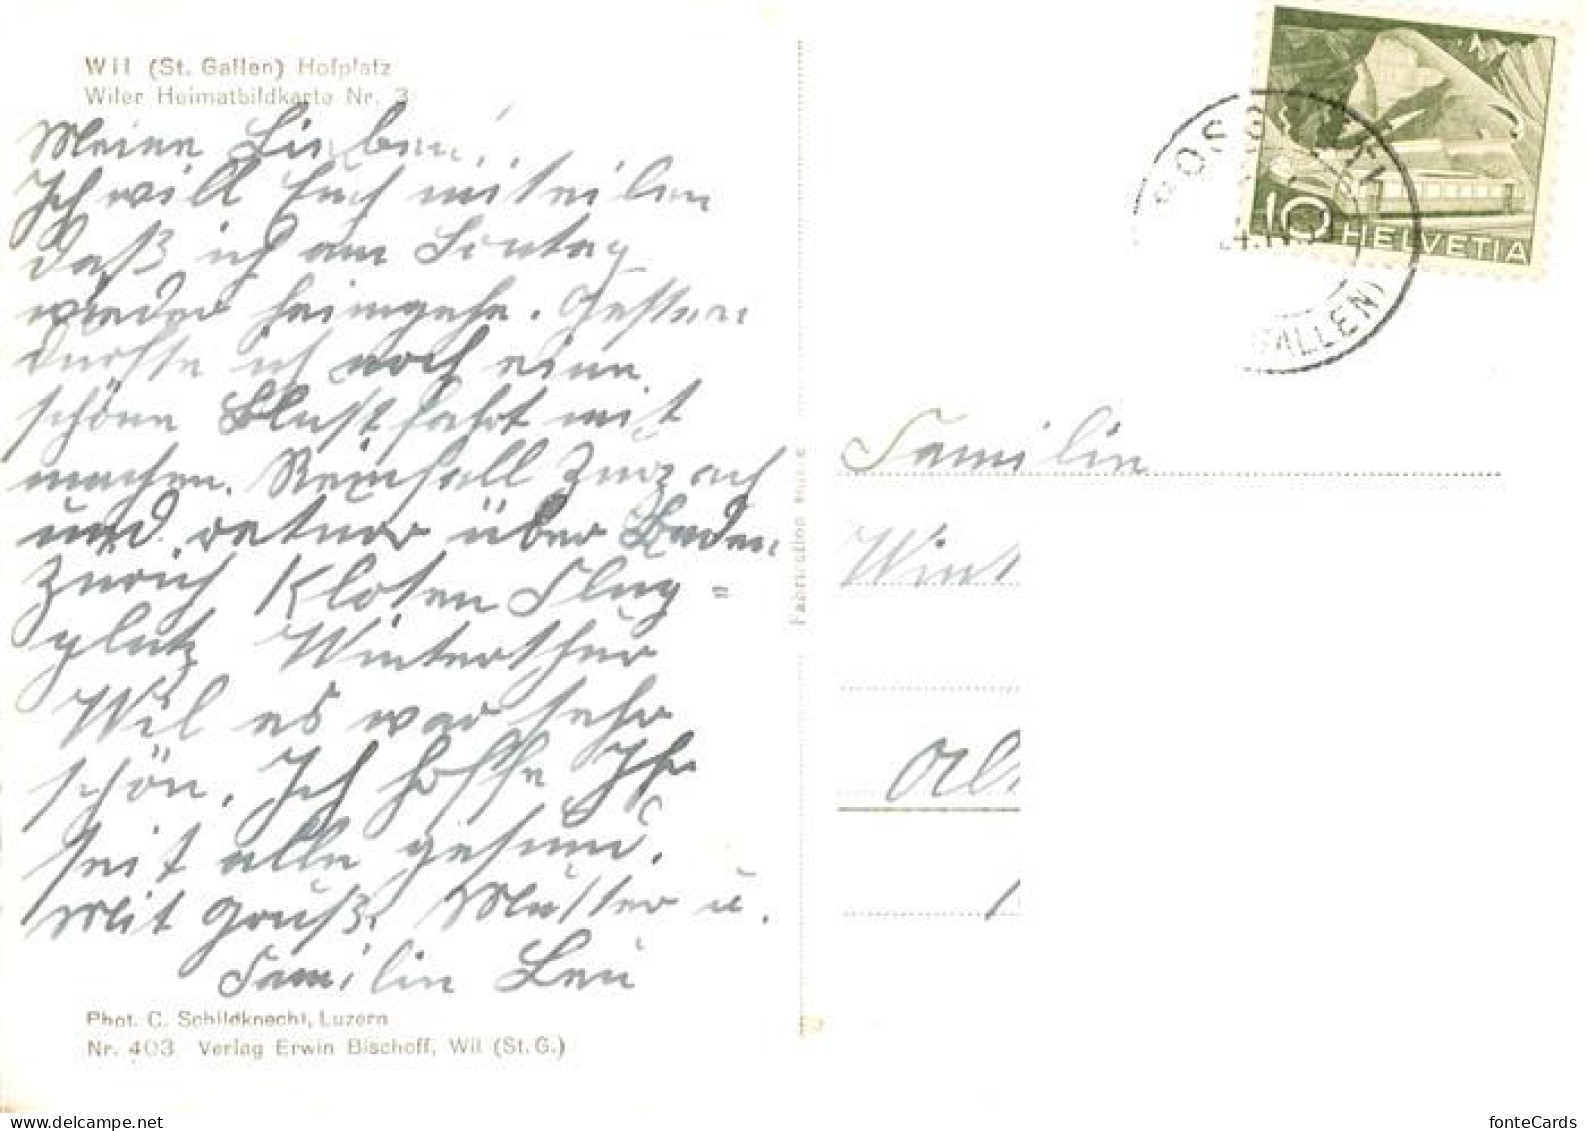 Wil (St. Gallen) Hofplatz
Wiler Heimatbildkarte Nr. 3
Meine Lieben!
Ich will Euch mitteilen
daß ich am Sontag
wieder heimgehe. Gestern
durfte ich noch eine
schöne Blustfahrt mit
machen. Reinfall Zurzach
und retuor über Baden
Zürich Kloten Flug=
platz Winterthur
Wil es war sehr
schön. Ich hoffe Ihr
seit alle gesund.
Mit Gruß. Mutter u.
Familie Leu
Phot. C. Schildknecht, Luzern
Nr. 403 Verlag Erwin Bischoff, Wil (St. G.)
10 HELVETIA
Familie
Wint
fonteCards